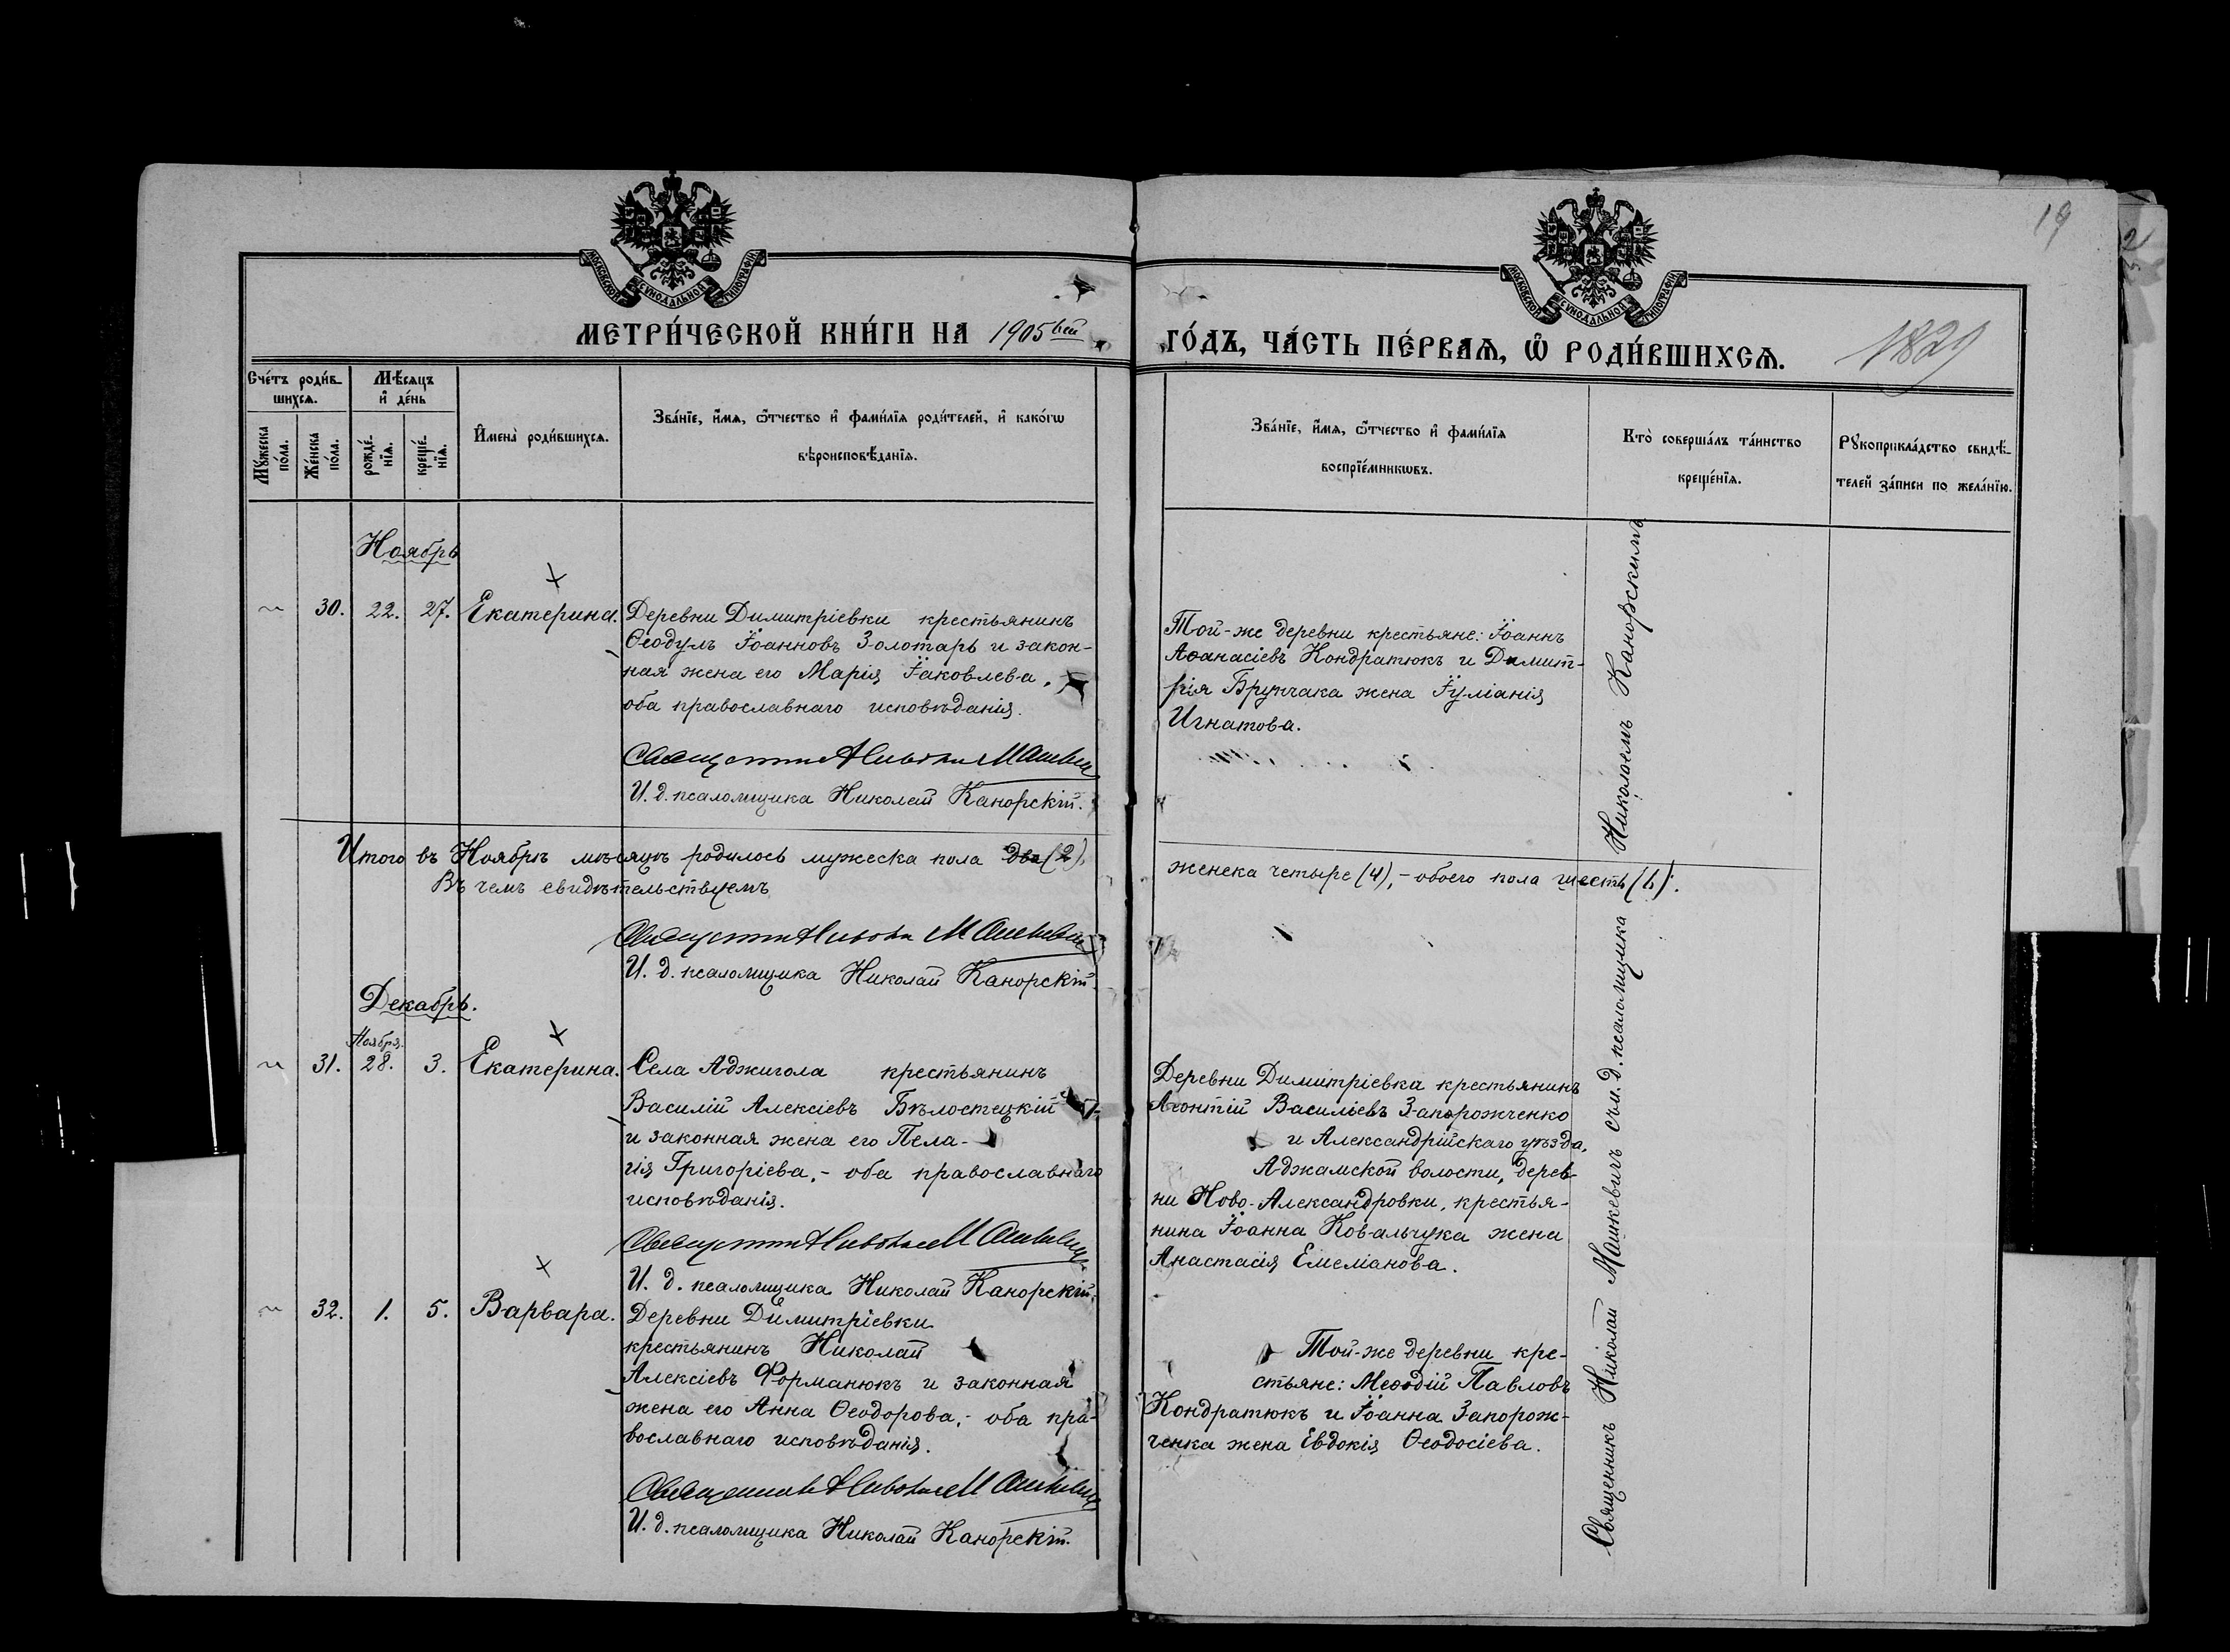 19
МОСКОВСКОЙ СУНОДАЛЬНОЙ ТИПОГРАФІИ
МОСКОВСКОЙ СУНОДАЛЬНОЙ ТИПОГРАФІИ
МЕТРИ́ЧЕСКОЙ КНИ́ГИ НА 1905 ʙᴇй
ГО́ДЪ, ЧА́СТЬ ПЕ́РВАѦ, Ѽ РОДИ́ВШИХСѦ.
1829
Сче́тъ роди́в-
шихсѧ.
Мꙋ́жеска
по́ла.
Же́нска
по́ла.
Мѣ́сѧцъ
и҆ де́нь
рожде́-
нїѧ.
креще́-
нїѧ.
И҆мена̀ роди́вшихсѧ.
Зва́нїе, и҆́мѧ, ѻ҆́тчество и҆ фами́лїѧ роди́телей, и҆ како́гѡ
вѣроисповѣ́данїѧ.
Зва́нїе, и҆́мѧ, ѻ҆́тчество и҆ фами́лїѧ
воспрїе́мникѡвъ.
Кто̀ соверша́лъ та́инство
креще́нїѧ.
Рꙋкоприкла́дство свидѣ́-
телей за́писи по жела́нїю.
Ноябрь
~ 30. 22. 27. Екатерина.
Деревни Димитріевки крестьянинъ
Ѳеодулъ Іоанновъ Золотарь и закон-
ная жена его Марія Іаковлева,
оба православнаго исповѣданія.
Священникъ Николай Машкевич
И. д. псаломщика Николай Канорскій.
Той-же деревни крестьяне: Іоаннъ
Аѳанасіевъ Кондратюкъ и Димит-
рія Брунчака жена Іуліанія
Игнатова.
Итого въ Ноябрѣ мѣсяцѣ родилось мужеска пола два (2),
женска четыре (4), - обоего пола шесть (6).
Въ чемъ свидѣтельствуемъ
Священникъ Николай Машкевич
И. д. псаломщика Николай Канорскій.
Декабрь.
Ноября.
~ 31. 28. 3. Екатерина.
Села Аджигола крестьянинъ
Василій Алексіевъ Бѣлостецкій
и законная жена его Пела-
гія Григоріева, - оба православнаго
исповѣданія.
Священникъ Николай Машкевич
И. д. псаломщика Николай Канорскій.
Деревни Димитріевка крестьянинъ
Леонтій Васильевъ Запорожченко
и Александрійскаго уѣзда,
Аджамской волости, дерев-
ни Ново-Александровки, крестья-
нина Іоанна Ковальчука жена
Анастасія Емеліанова.
~ 32. 1. 5. Варвара.
Деревни Димитріевки
крестьянинъ Николай
Алексіевъ Форманюкъ и законная
жена его Анна Ѳеодорова, - оба пра-
вославнаго исповѣданія.
Священникъ Николай Машкевич
И. д. псаломщика Николай Канорскій.
Той-же деревни кре-
стьяне: Меѳодій Павловъ
Кондратюкъ и Іоанна Запорож-
ченка жена Евдокія Ѳеодосіева.
Священникъ Николай Машкевичъ съ и. д. псаломщика Николаемъ Канорскимъ